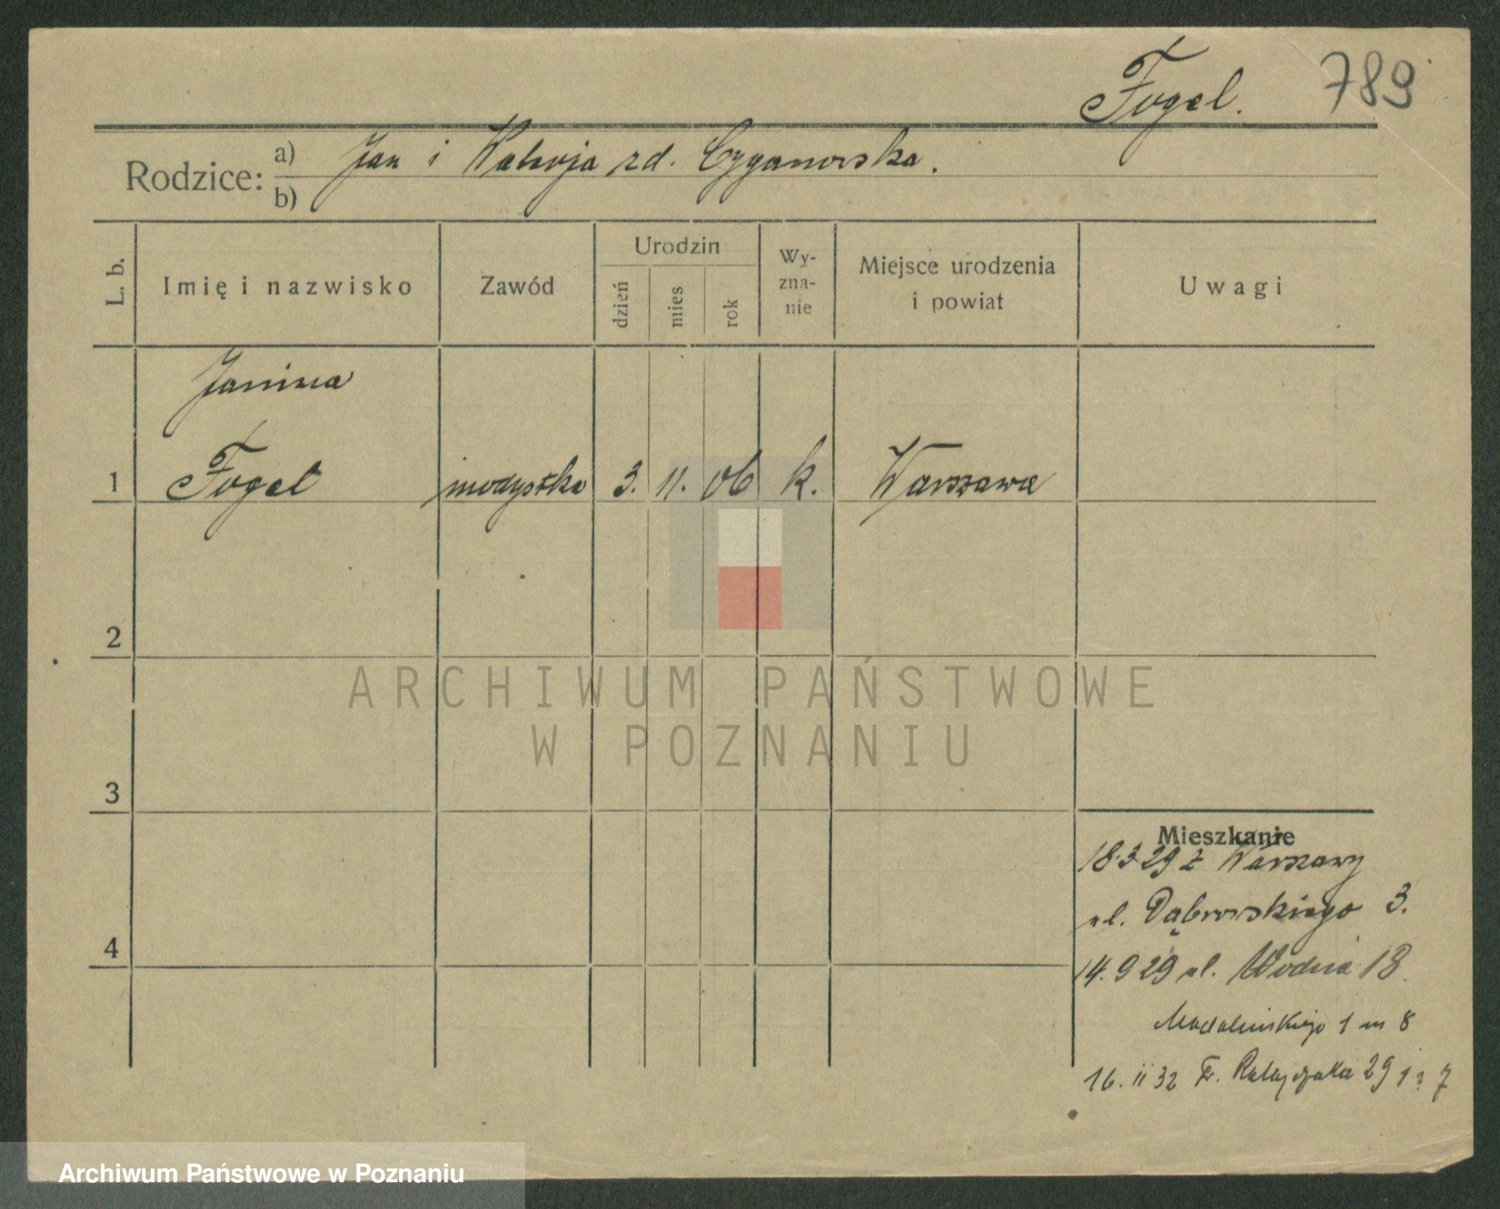 Fogel. 789
Rodzice: a) Jan i zd. Cyganowska.
b)
L. b.
Imię i nazwisko
Zawód
Urodzin
dzień
mies
rok
Wy-
zna-
nie
Miejsce urodzenia
i powiat
Uwagi
Janina
1 Fogel modystka 3. 11. 06 k. Warszawa
2
3
4
ARCHIWUM PAŃSTWOWE
W POZNANIU
Mieszkanie
18.3 29 z Warszawy
ul. Dąbrowskiego 3.
14.9 29 ul. Wodna 18.
Madalińskiego 1 m 8
16. II 32 Fr. Ratajczaka 29 7
Archiwum Państwowe w Poznaniu